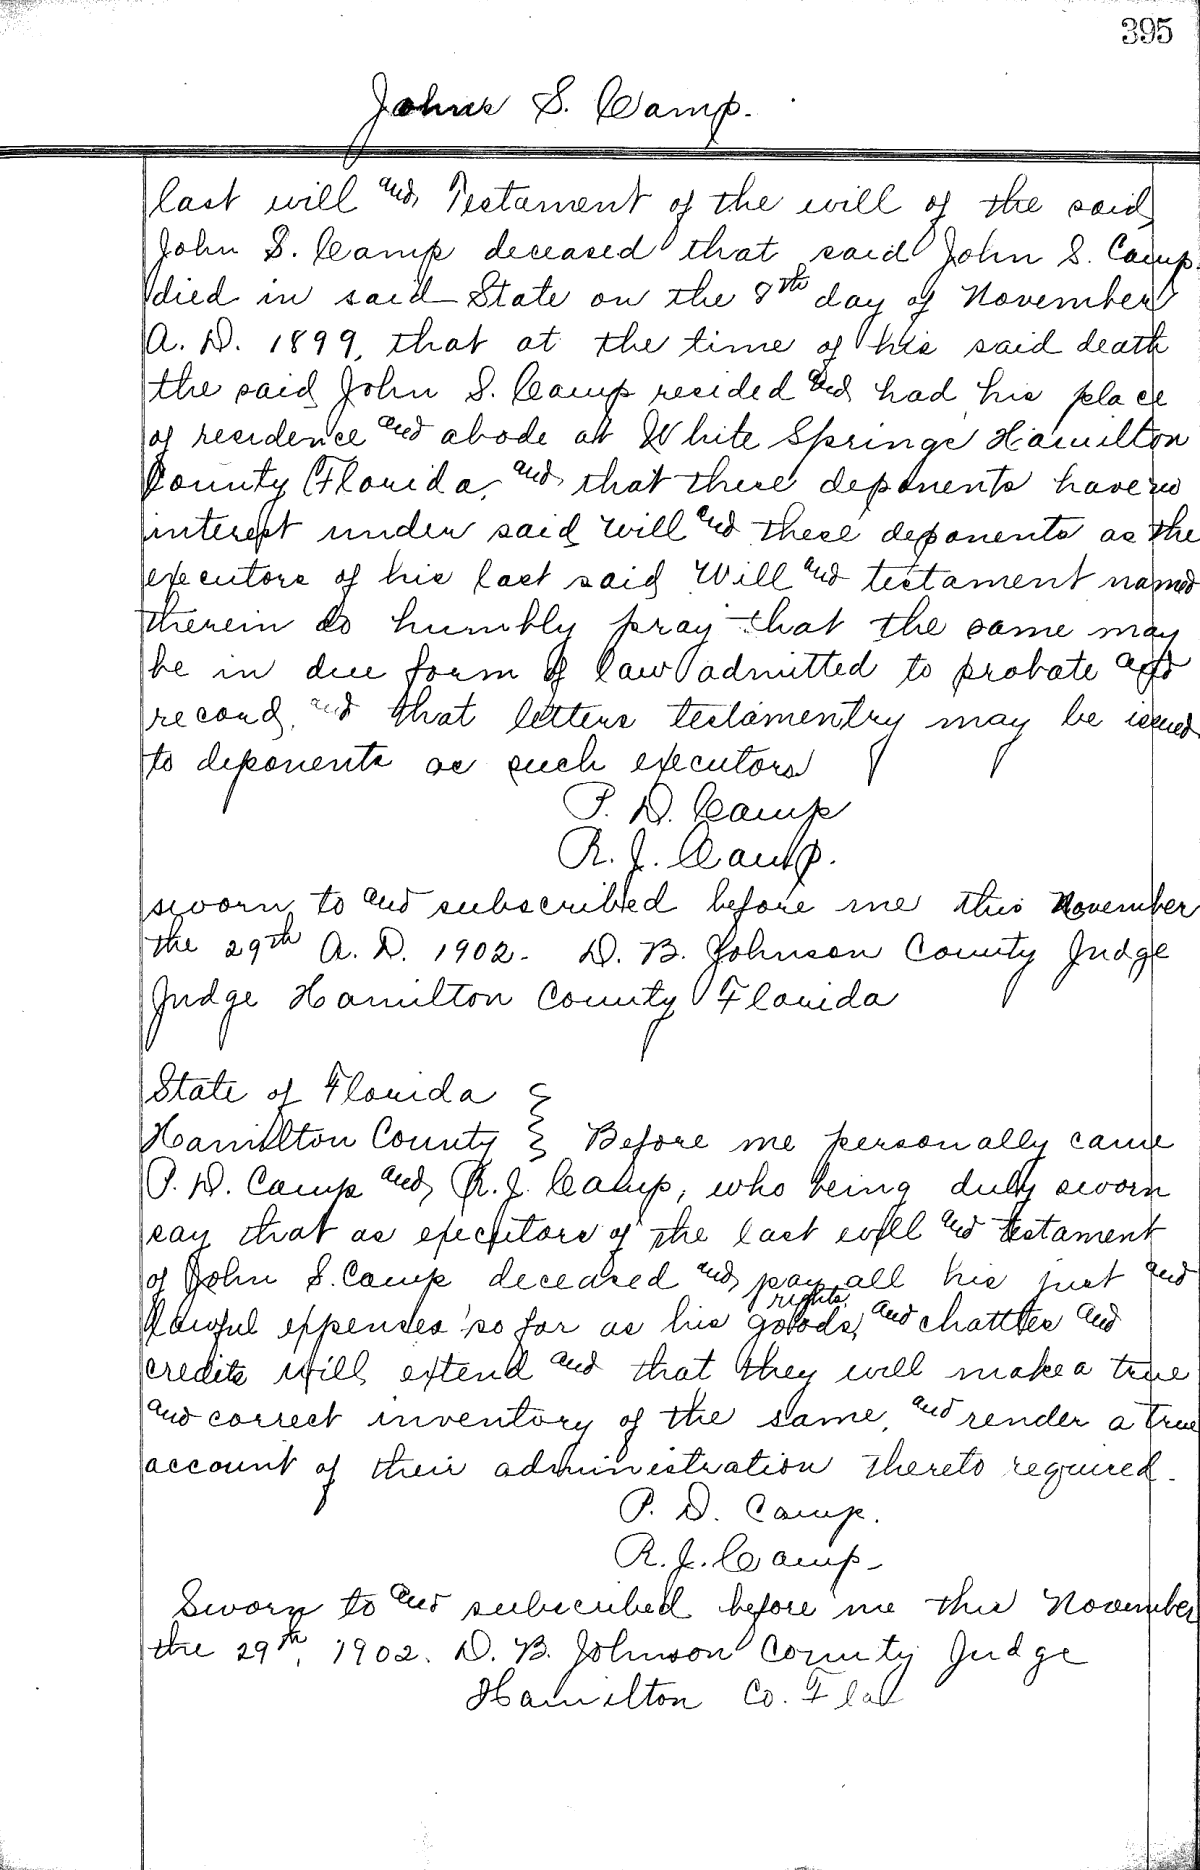 395
John S. Camp.
last will and Testament of the will of the said
John S. Camp deceased that said John S. Camp.
died in said State on the 8th day of November
A. D. 1899, that at the time of his said death
the said John S. Camp resided and had his place
of residence and abode at White Springs Hamilton
County Florida, and that these deponents have no
interest under said will and these deponents as the
executors of his last said Will and testament named
therein do humbly pray that the same may
be in due form of law admitted to probate and
record, and that letters testamentry may be issued
to deponents as such executors
P. D. Camp
R. J. Camp.
sworn to and subscribed before me this November
the 29th A. D. 1902. D. B. Johnson County Judge
Judge Hamilton County Florida
State of Florida }
Hamilton County } Before me personally came
P. D. Camp and R. J. Camp, who being duly sworn
say that as executors of the last will and testament
of John S. Camp deceased and pay all his just and
lawful expenses so far as his goods, rights and chattles and
credits will extend and that they will make a true
and correct inventory of the same, and render a true
account of their administration thereto required.
P. D. Camp.
R. J. Camp
Sworn to and subscribed before me this November
the 29th, 1902. D. B. Johnson County Judge
Hamilton Co. Fla